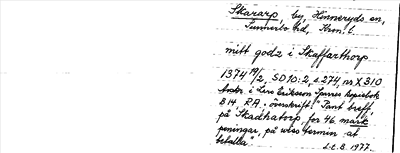 Skararp, by, Hinneryds sn,
Sunnerbo hd, Kron. l.
mitt godz i Skaffarthorp
1374 19/2, SD 10:2, s. 274, nr X 310
Avskr. i Lars Eriksson Sparres kopiebok
B 14, RA, överskrift: "Pant breff
på Skadhatorp for 46 mark
peningar, på wiss termin at
betalla. L.E.B. 1977